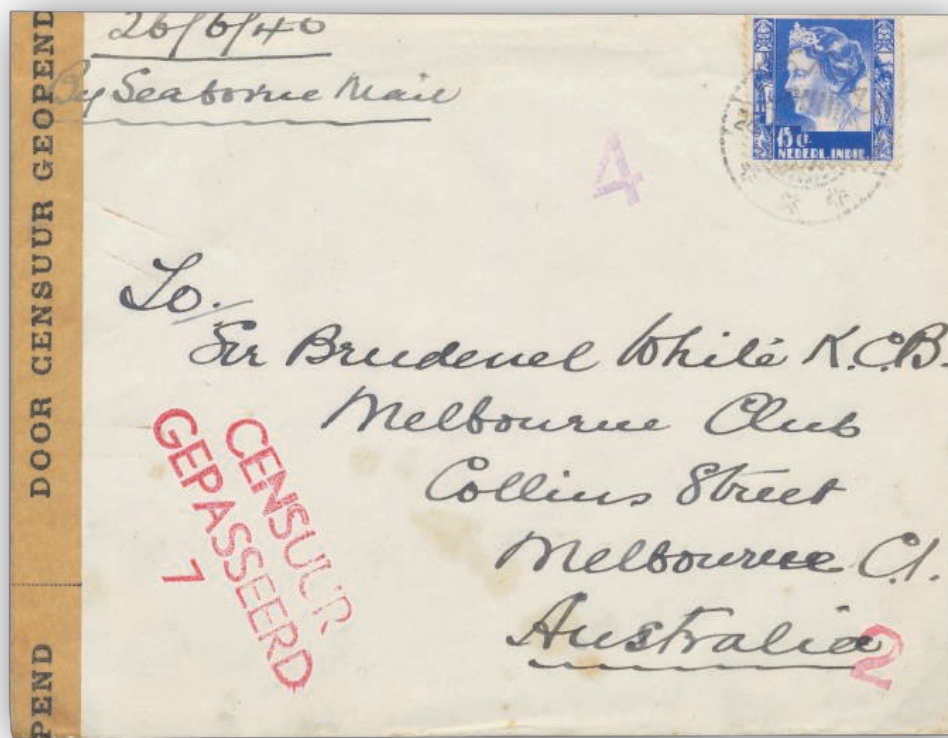 DOOR CENSUUR GEOPEND
PEND
26/6/40
By Seaborne Mail
15 ct
NEDERL. INDIE
4
To/
Sir Brudenel White K.C.B.
Melbourne Club
Collins Street
Melbourne C.1.
Australia
CENSUUR
GEPASSEERD
7
2